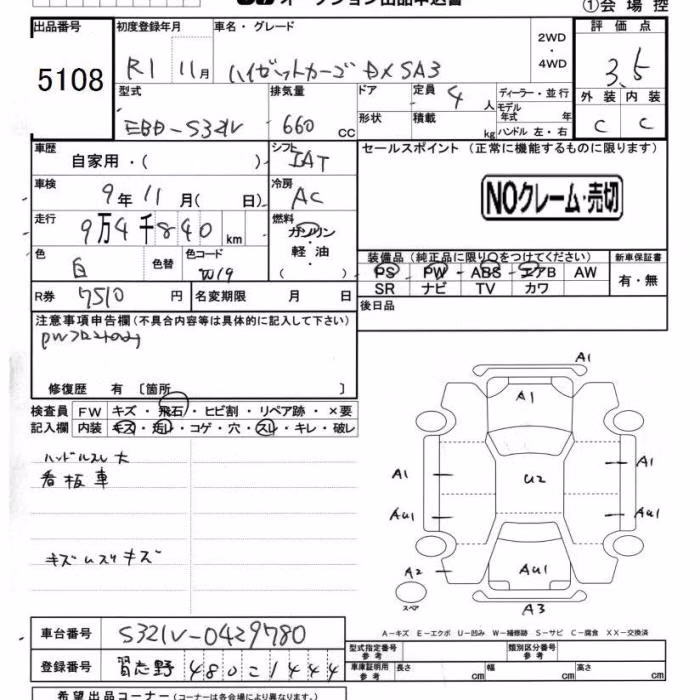 オークション出品申込書
①会場控
出品番号 5108
初度登録年月 R1 11月
車名・グレード ハイゼットカーゴ DX SA3
2WD・4WD
評価点 3.5
型式 EBD-S321V
排気量 660 CC
ドア
形状
定員 4 人
積載 kg
ディーラー・並行
モデル年式 年
ハンドル 左・右
外装 C
内装 C
車歴 自家用・( )
シフト IAT
車検 9年11月( 日)
冷房 AC
走行 9万4千840km
燃料 ガソリン・軽油( )
色 白
色替
色コード W19
R券 7510円
名変期限 月 日
セールスポイント (正常に機能するものに限ります)
NOクレーム・売切
装備品(純正品に限り○をつけてください)
新車保証書
PS PW ABS エアB AW
SR ナビ TV カワ
有・無
後日品
注意事項申告欄(不具合内容等は具体的に記入して下さい)
修復歴 有 〔箇所 〕
検査員 FW キズ・飛石・ヒビ割・リペア跡・×要
記入欄 内装 キズ・汚レ・コゲ・穴・スレ・キレ・破レ
ハンドルスレ 大
看板車
キズ ムスリキズ
A1
A1
A1
A1
U2
AU1
AU1
AU1
A2
A3
スペア
A-キズ E-エクボ U-凹み W-補修跡 S-サビ C-腐食 XX-交換済
車台番号 S321V-0429780
登録番号 習志野 480こ1444
型式指定番号 参考
類別区分番号 参考
車庫証明用 参考 長さ cm 幅 cm 高さ cm
希望出品コーナー(コーナーは各会場により異なります。)